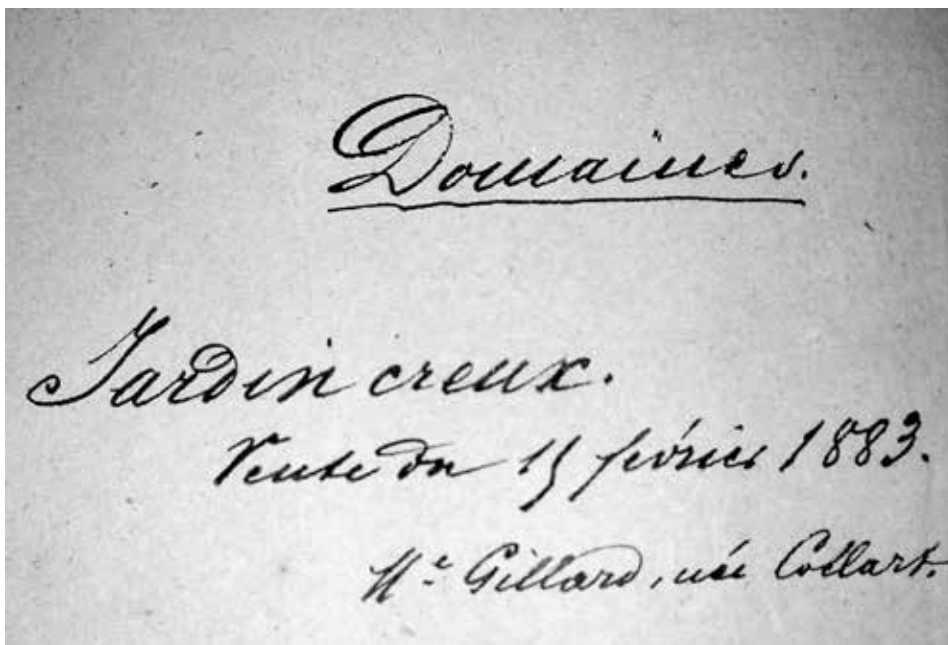 Domaines.
Jardin creux.
Vente du 15 février 1883.
Me Gillard, née Collart.